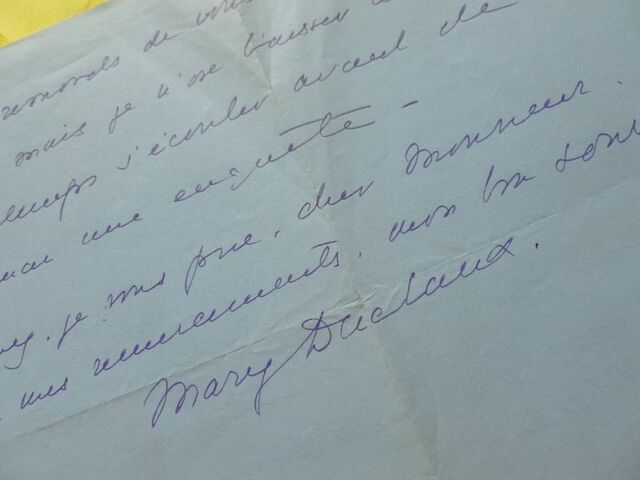 remords de
mais je n'ose laisser
temps s'écouler avant de
une enquête –
je vous prie, cher Monsieur.
mes remerciements, mon bon souv
Mary Duclaux.